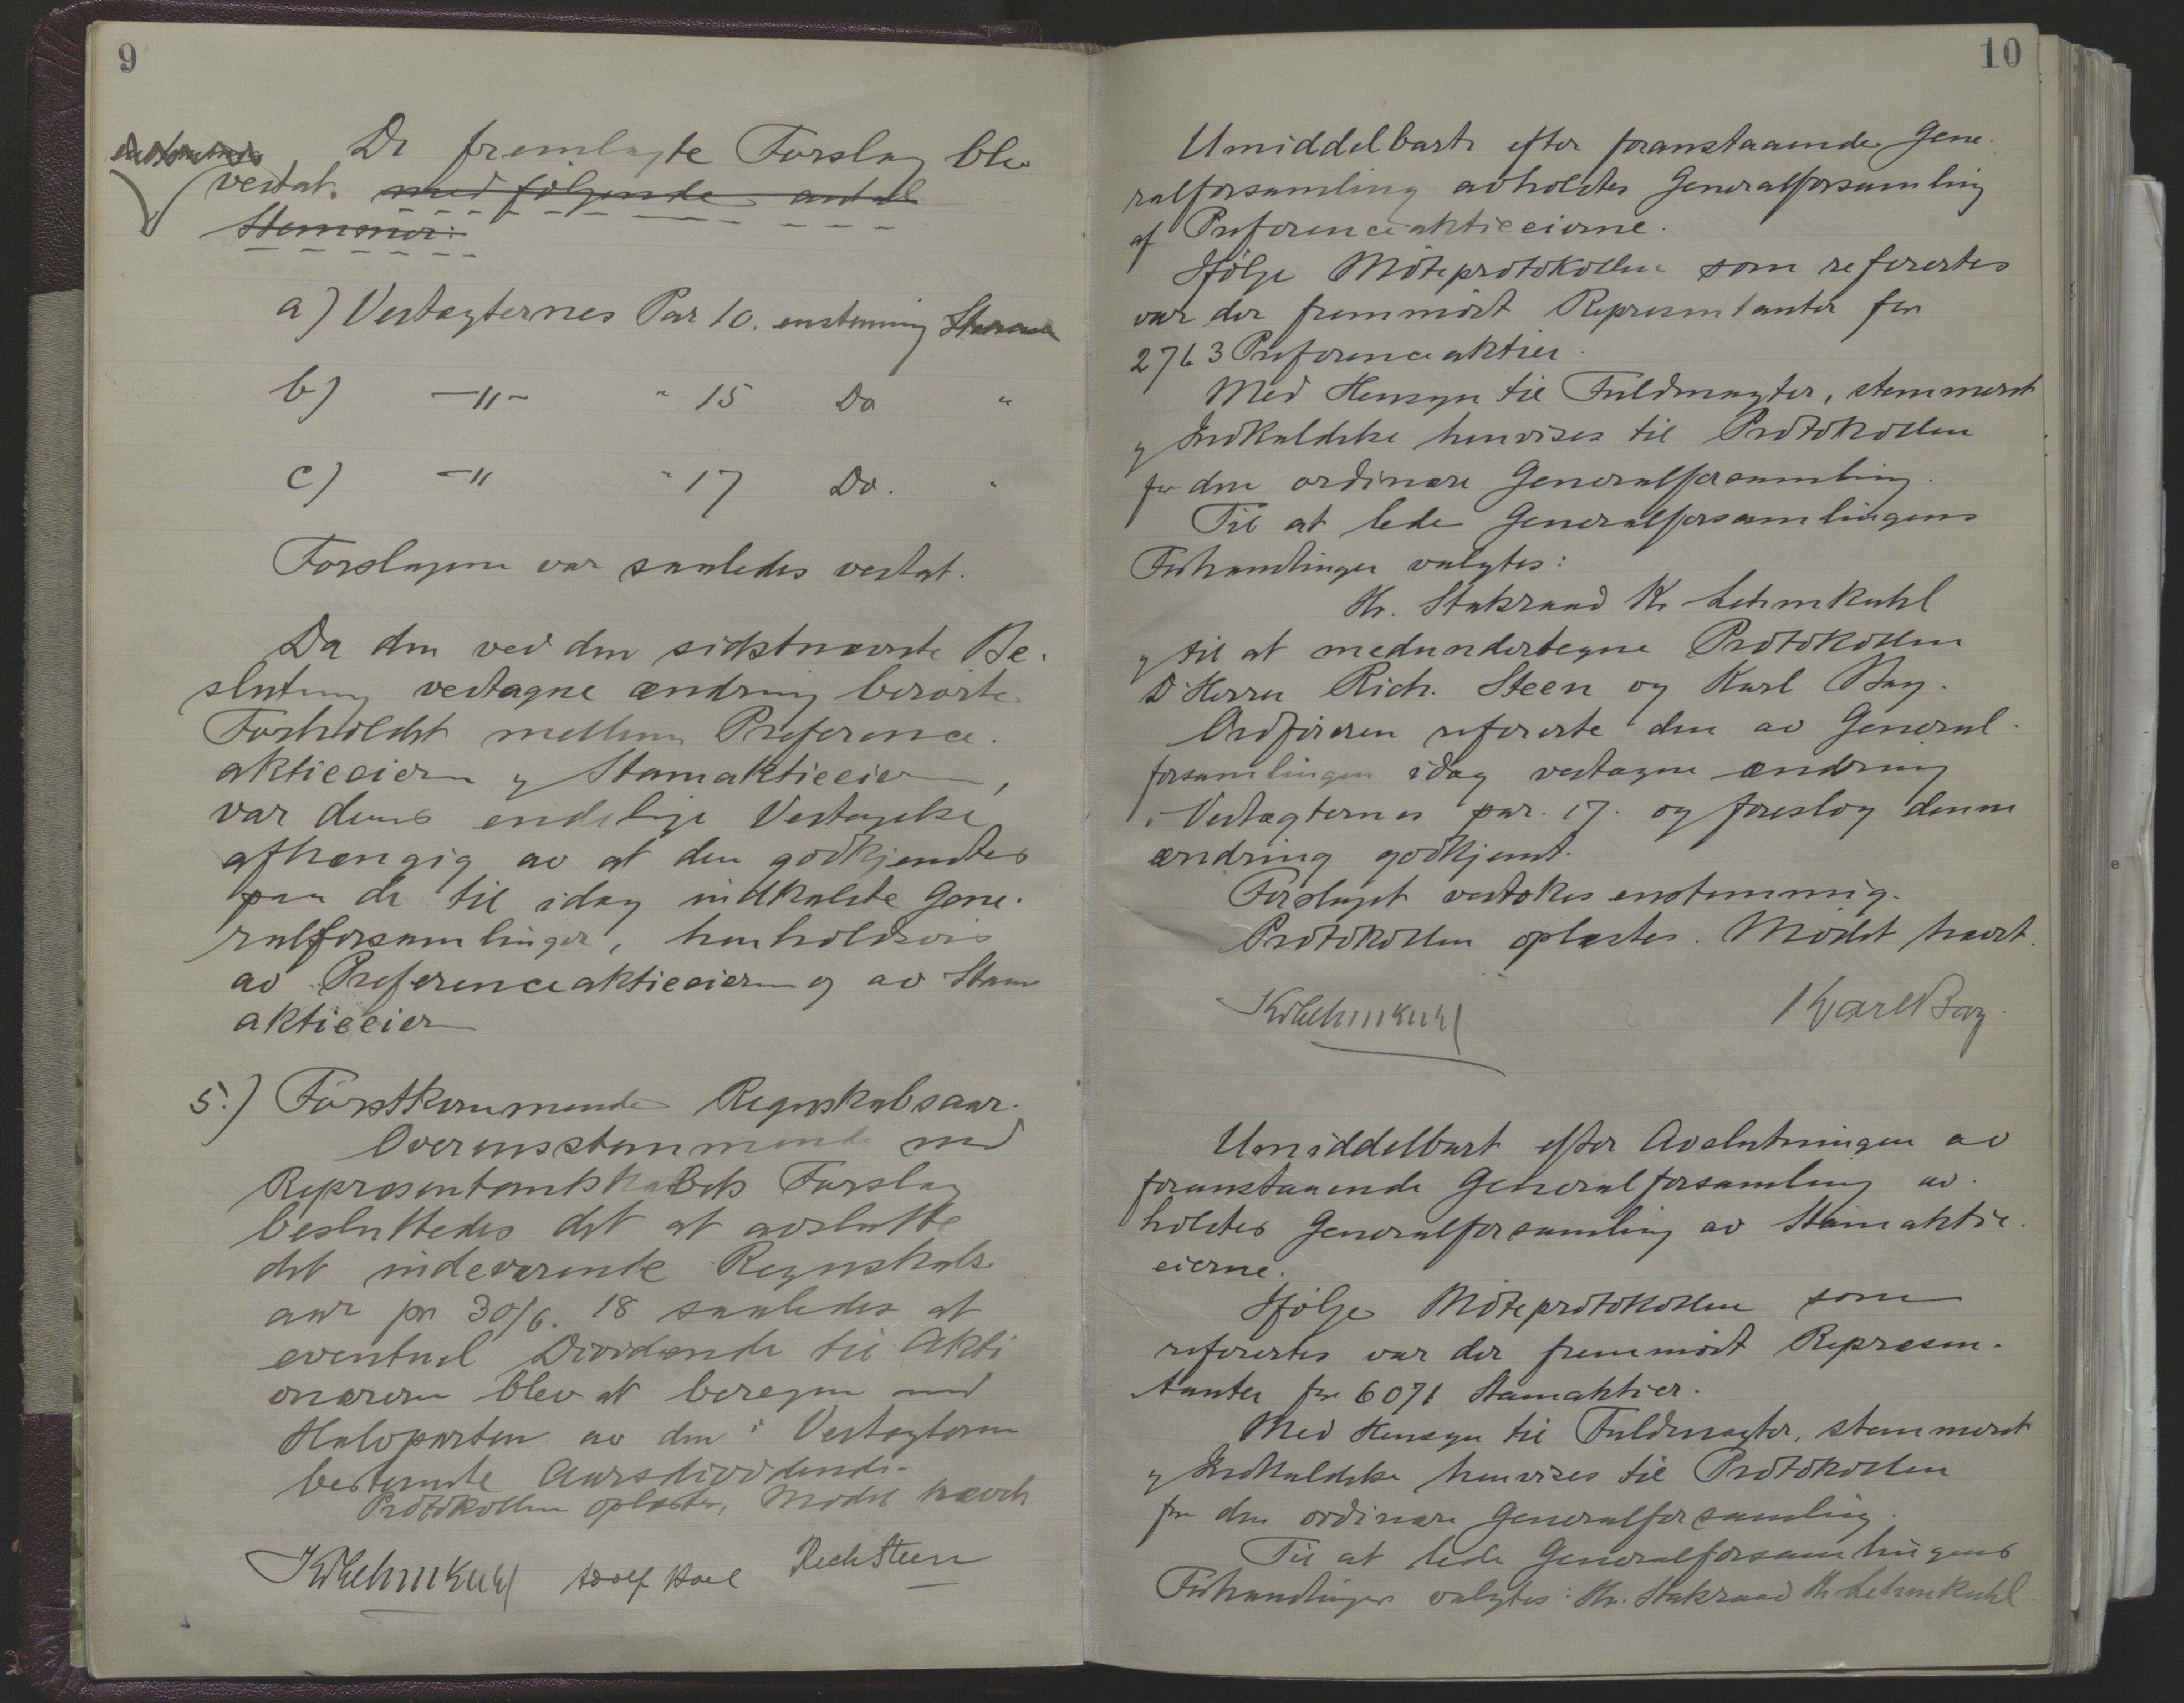 9
De fremlagte Forslag blev
vedtat. med følgende antal
Stemmer:
a) Vedtægternes Par 10. enstemmig
b) -"- " 15 Do "
c) -" " 17 Do. "
Forslagene var saaledes vedtat.
Da den ved den sidstnævnte Be-
slutning vedtagne ændring berørte
Forholdet mellem Præference-
aktieeierne og Stamaktieeierne,
var dens endelige Vedtagelse
afhængig av at den godkjendtes
paa de til idag indkaldte Gene-
ralforsamlinger, henholdsvis
av Præferenceaktieeierne og av Stam
aktieeierne
5.) Førstkommende Regnskabsaar.
Overensstemmende med
Repræsentantskabets Forslag
besluttedes det at avslutte
det indeværende Regnskabs
aar pr 30/6. 18 saaledes at
eventuel Dividende til Akti
onærerne blev at beregne med
Halvparten av den i Vedtægterne
bestemte Aarsdividende.
Protokollen oplæstes, Mødet hævet
KrLehmkuhl Adolf Hoel Rich Steen
10
Umiddelbart efter foranstaaende Gene-
ralforsamling avholdtes Generalforsamling
af Præferenceaktieeierne.
Ifølge Møteprotokollen som refertes
var der fremmødt Repræsentanter for
2763 Præferenceaktier.
Med Hensyn til Fuldmagter, stemmeret
og Indkaldelse henvises til Protokollen
for den ordinære Generalforsamling.
Til at lede Generalforsamlingens
Forhandlinger valgtes:
Hr. Statsraad Kr Lehmkuhl
og til at medundertegne Protokollen
D'Herrer Rich. Steen og Karl Bay.
Ordføreren refererte den av General-
forsamlingen idag vedtagne ændring
i Vedtægternes par. 17. og foreslog denne
ændring godkjent.
Forslaget vedtokes enstemmig.
Protokollen oplæstes. Mødet hævet.
KrLehmkuhl Karl Bay.
Umiddelbart efter Avslutningen av
foranstaaende Generalforsamling av-
holdtes Generalforsamling av Stamaktie-
eierne.
Ifølge Møteprotokollen som
refertes var der fremmødt Repræsen-
tanter for 6071 Stamaktier.
Med Hensyn til Fuldmagter, stemmeret
og Indkaldelse henvises til Protokollen
for den ordinære Generalforsamling.
Til at lede Generalforsamlingens
Forhandlinger valgtes: Hr. Statsraad Kr Lehmkuhl.